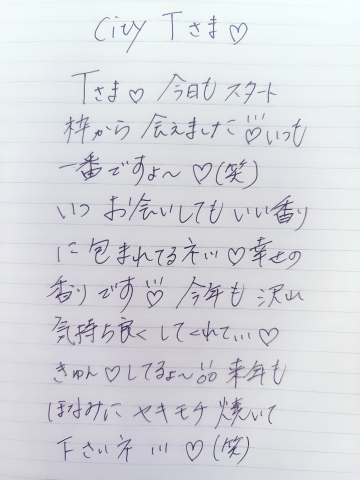 City Tさま♡
Tさま♡ 今日も スタート
枠から 会えました♡いつも
一番ですよ〜 ♡(笑)
いつ お会いしても いい香り
に 包まれてるネ!!! ♡幸せの
香りです♡ 今年も 沢山
気持ち良く してくれて... ♡
きゅん♡してるょ〜 来年も
ほなみに ヤキモチ 焼いて
下さいネ !!! ♡(笑)